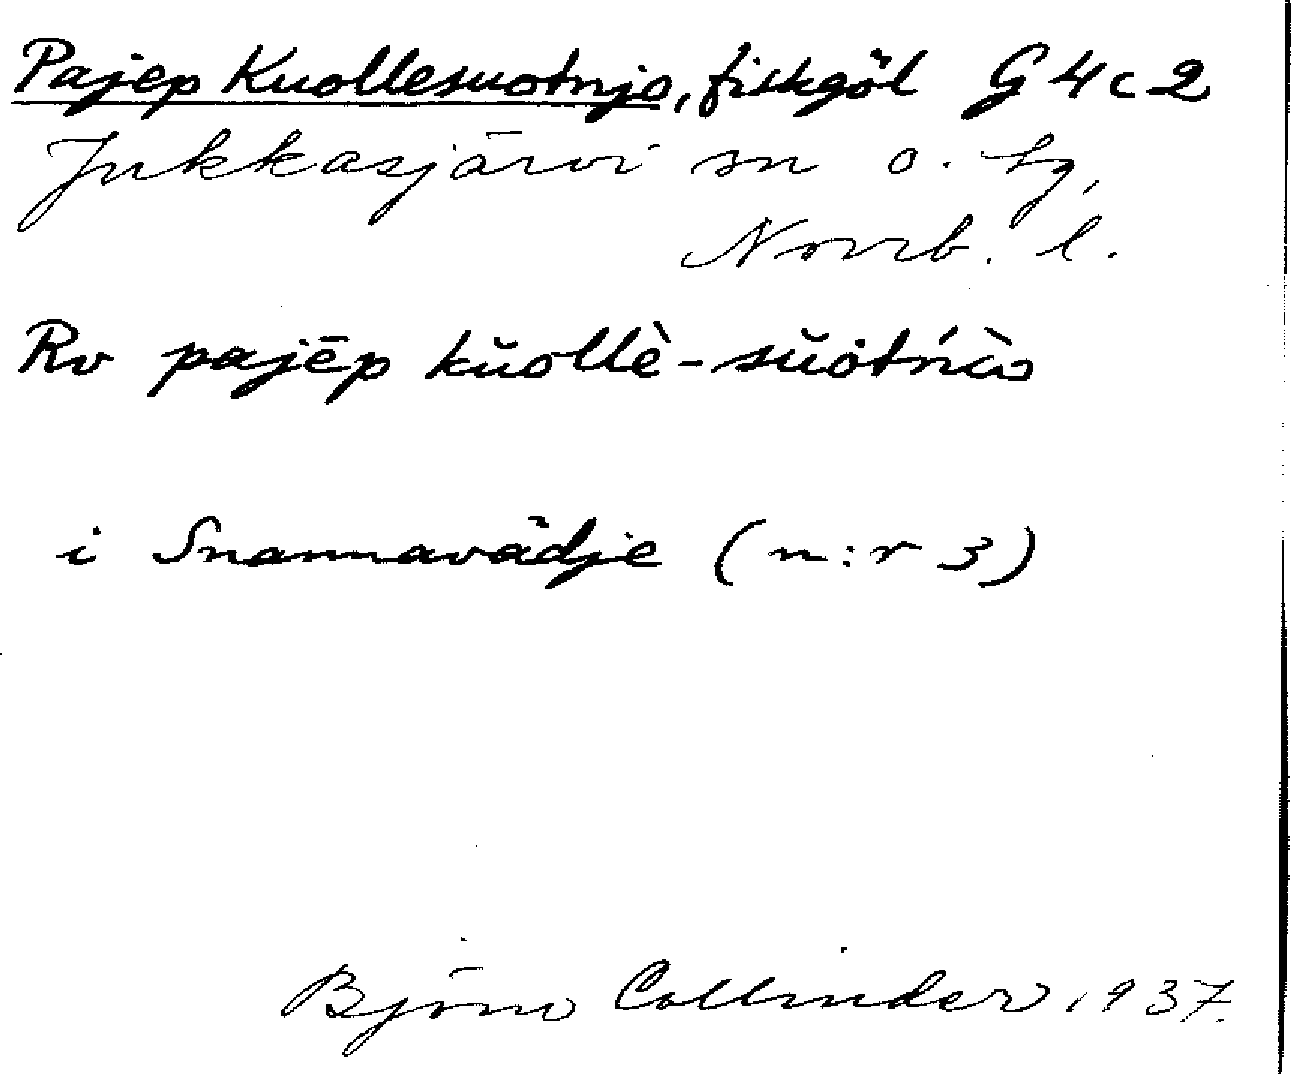 Pajep Kuollesuotnjo, fiskgöl G4c2
Jukkasjärvi sn o. hg,
Norrb. l.
Rv pajēp kŭollè-sŭòtńi̯ò
i Snamavādje (n:r 3)
Björn Collinder 1937.